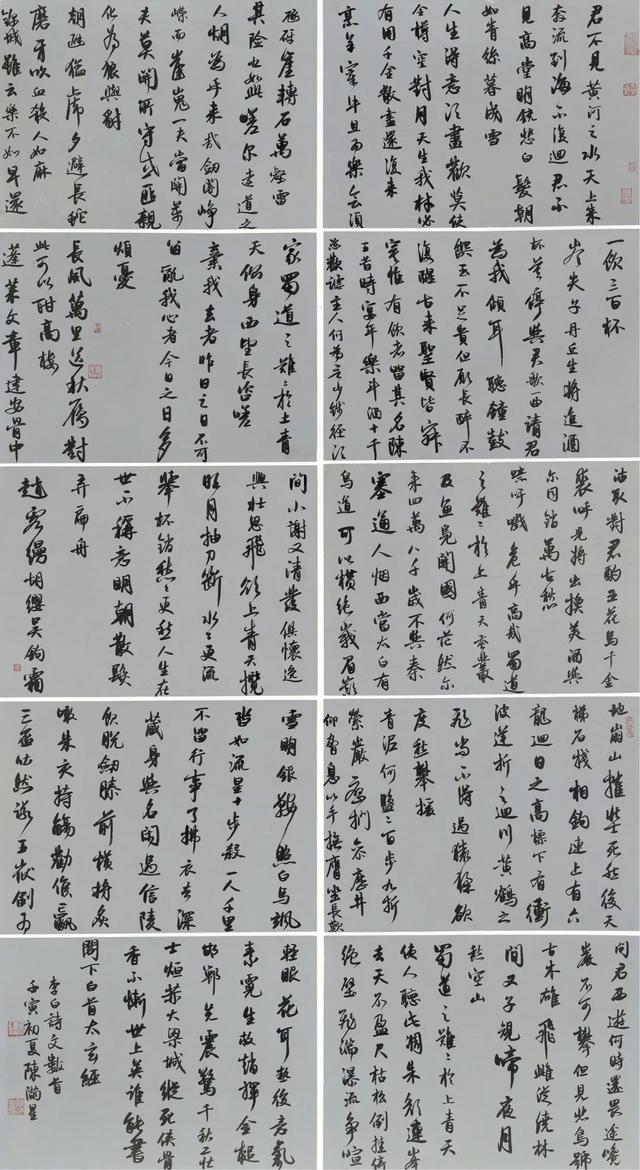 君不見黄河之水天上来
奔流到海不復迴君不
見高堂明鏡悲白髮朝
如青絲暮成雪
人生得意須盡歡莫使
金樽空對月天生我材必
有用千金散盡還復来
烹羊宰牛且為樂會須
一飲三百杯
岑夫子丹丘生將進酒
杯莫停與君歌一曲請君
為我傾耳聽鐘鼓
饌玉不足貴但願長醉不
復醒古来聖賢皆寂
寞惟有飲者留其名陳
王昔時宴平樂斗酒十千
恣歡謔主人何為言少錢徑須
沽取對君酌五花馬千金
裘呼兒將出換美酒與
尔同銷萬古愁
噫吁嚱危乎高哉蜀道
之難難於上青天蚕叢
及魚鳧開國何茫然尔
来四萬八千歲不與秦
塞通人烟西當太白有
鳥道可以横絶峨眉巔
地崩山摧壯士死然後天
梯石棧相鉤連上有六
龍迴日之高標下有衝
波逆折之迴川黄鶴之
飛尚不得過猿猱欲
度愁攀援
青泥何盤盤百步九折
縈巖巒捫參歷井
仰脅息以手撫膺坐長歎
問君西遊何時還畏途巉
巖不可攀但見悲鳥號
古木雄飛雌從繞林
間又子規啼夜月
愁空山
蜀道之難難於上青天
使人聽此凋朱顔連峯
去天不盈尺枯松倒挂倚
絶壁飛湍瀑流争喧
砯崖轉石萬壑雷
其險也如此嗟尔遠道之
人胡為乎来哉劍閣峥
嶸而崔嵬一夫當関萬
夫莫開所守或匪親
化為狼與豺
朝避猛虎夕避長蛇
磨牙吮血殺人如麻
錦城雖云樂不如早還
家蜀道之難難於上青
天側身西望長咨嗟
棄我去者昨日之日不可
留亂我心者今日之日多
煩憂
長風萬里送秋雁對
此可以酣高樓
蓬萊文章建安骨中
間小謝又清發俱懷逸
興壮思飛欲上青天攬
明月抽刀斷水水更流
舉杯銷愁愁更愁人生在
世不稱意明朝散髮
弄扁舟
趙客縵胡纓吴鉤霜
雪明銀鞍照白馬颯
沓如流星十步殺一人千里
不留行事了拂衣去深
藏身與名閑過信陵
飲脱劍膝前横將炙
啖朱亥持觴勸侯嬴
三盃吐然諾五嶽倒為
輕眼花耳热後意氣
素霓生救趙揮金槌
邯鄲先震驚千秋二壮
士烜赫大梁城縱死俠骨
香不慚世上英誰能書
閣下白首太玄經
李白詩文數首
壬寅初夏陳